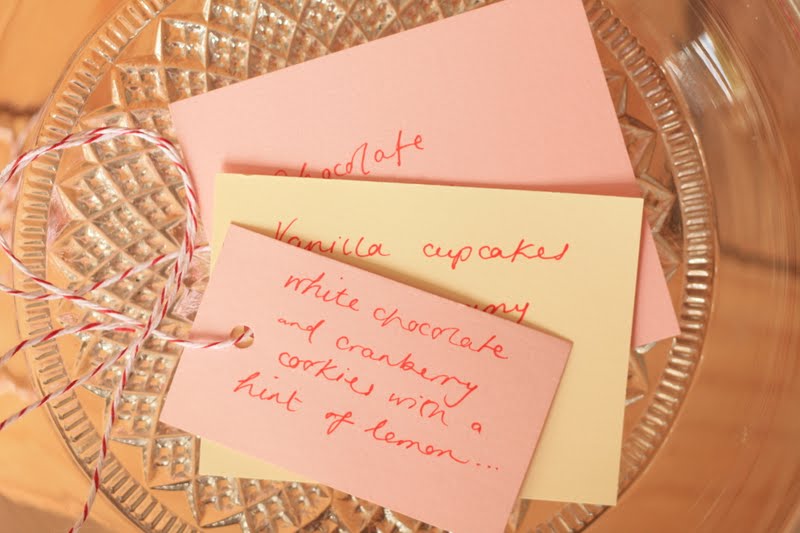 chocolate
Vanilla cupcakes
white chocolate
and cranberry
cookies with a
hint of lemon...